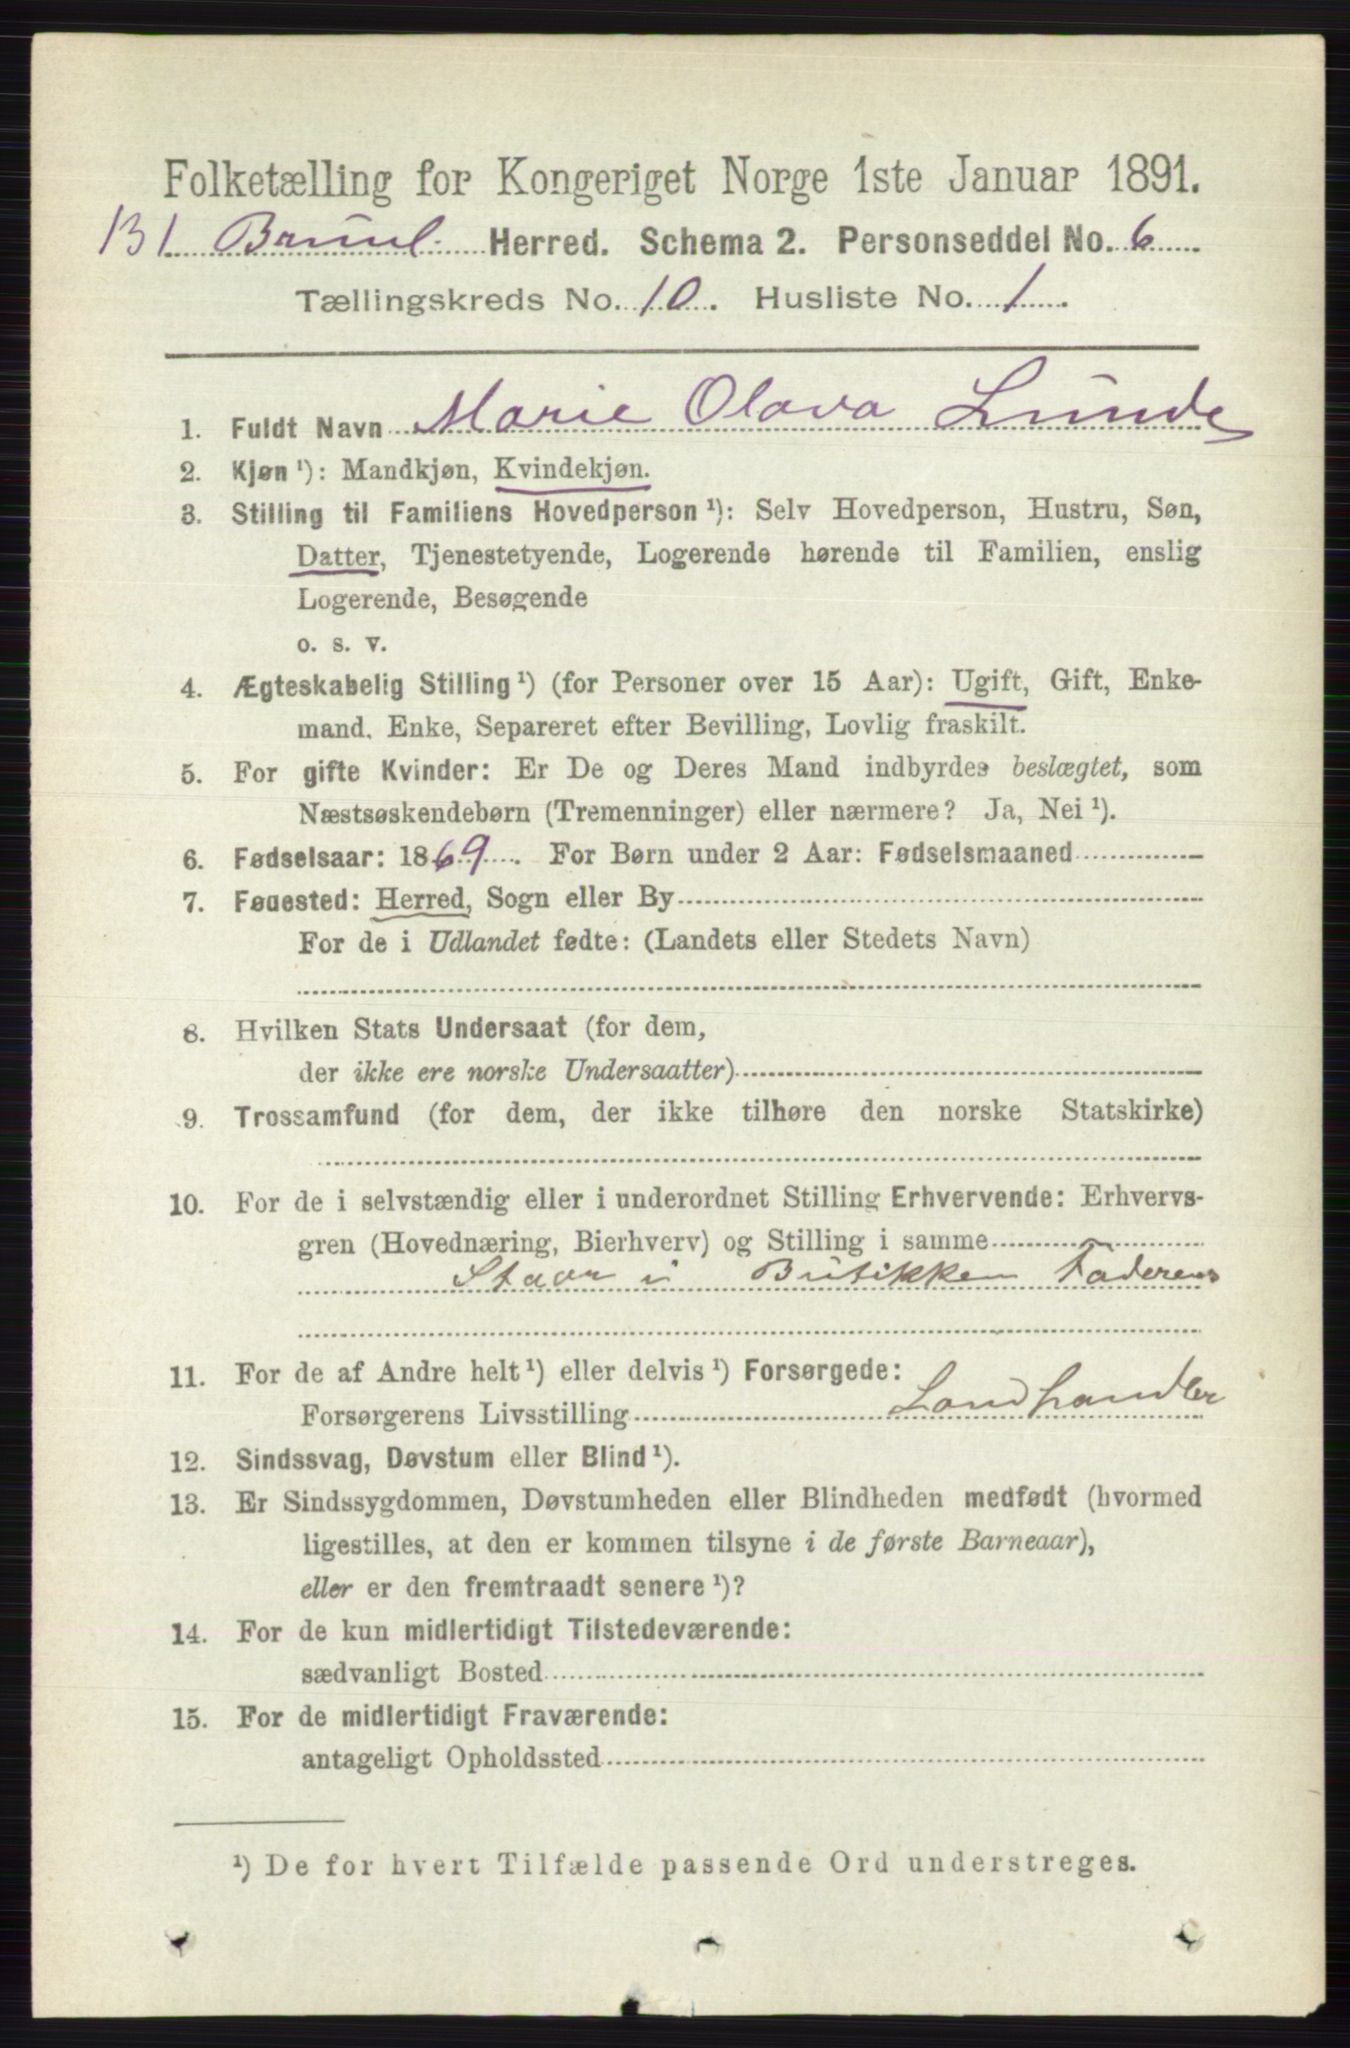 Folketælling for Kongeriget Norge 1ste Januar 1891.
131 Brunl. Herred. Schema 2. Personseddel No. 6
Tællingskreds No. 10. Husliste No. 1.
1. Fuldt Navn Marie Olava Lunde
2. Kjøn ¹): Mandkjøn, Kvindekjøn.
3. Stilling til Familiens Hovedperson ¹): Selv Hovedperson, Hustru, Søn,
Datter, Tjenestetyende, Logerende hørende til Familien, enslig
Logerende, Besøgende
o. s. v.
4. Ægteskabelig Stilling ¹) (for Personer over 15 Aar): Ugift, Gift, Enke-
mand, Enke, Separeret efter Bevilling, Lovlig fraskilt.
5. For gifte Kvinder: Er De og Deres Mand indbyrdes beslægtet, som
Næstsøskendebørn (Tremenninger) eller nærmere? Ja, Nei ¹).
6. Fødselsaar: 1869. For Børn under 2 Aar: Fødselsmaaned
7. Fødested: Herred, Sogn eller By
For de i Udlandet fødte: (Landets eller Stedets Navn)
8. Hvilken Stats Undersaat (for dem,
der ikke ere norske Undersaatter)
9. Trossamfund (for dem, der ikke tilhøre den norske Statskirke)
10. For de i selvstændig eller i underordnet Stilling Erhvervende: Erhvervs-
gren (Hovednæring, Bierhverv) og Stilling i samme
Staar i Butikken Faderens
11. For de af Andre helt ¹) eller delvis ¹) Forsørgede:
Forsørgerens Livsstilling Landhandler
12. Sindssvag, Døvstum eller Blind ¹).
13. Er Sindssygdommen, Døvstumheden eller Blindheden medfødt (hvormed
ligestilles, at den er kommen tilsyne i de første Barneaar),
eller er den fremtraadt senere ¹)?
14. For de kun midlertidigt Tilstedeværende:
sædvanligt Bosted
15. For de midlertidigt Fraværende:
antageligt Opholdssted
¹) De for hvert Tilfælde passende Ord understreges.